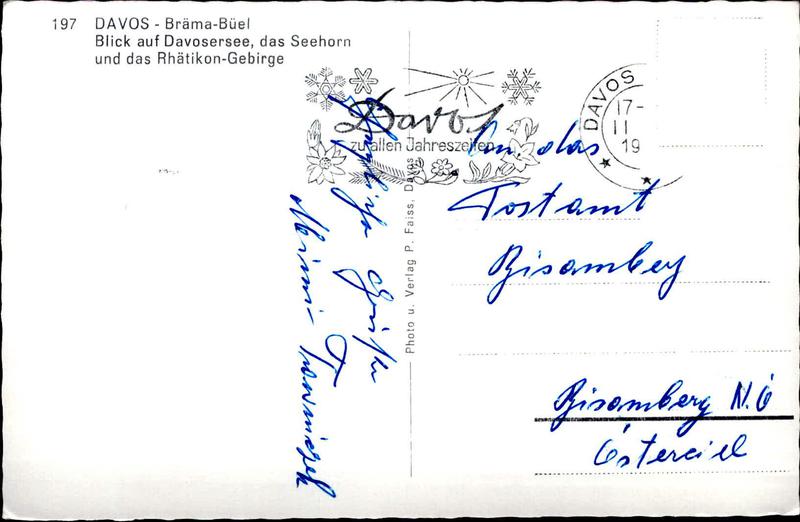 197 DAVOS - Bräma-Büel
Blick auf Davosersee, das Seehorn
und das Rhätikon-Gebirge
Davos
zu allen Jahreszeiten
DAVOS
17-
II
19
Photo u. Verlag P. Faiss, Davos
Grüße
Mimi
An das
Postamt
Bisamberg
Bisamberg N.Ö
Österreich